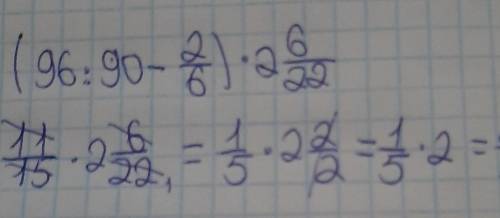 (96:90-2/6)·2 6/22
11/15·2 6/22, = 1/5·2 2/2 = 1/5·2 =